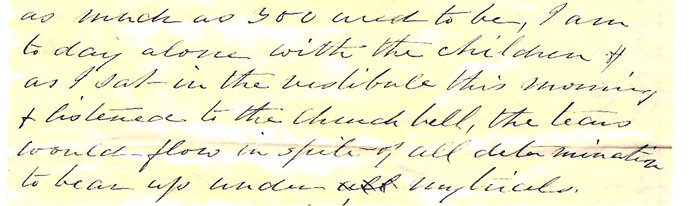 as much as you used to be, I am
to day alone with the children &
as I sat in the vestibule this morning
& listened to the Church bell, the tears
would flow in spite of all determination
to bear up under all my trials.